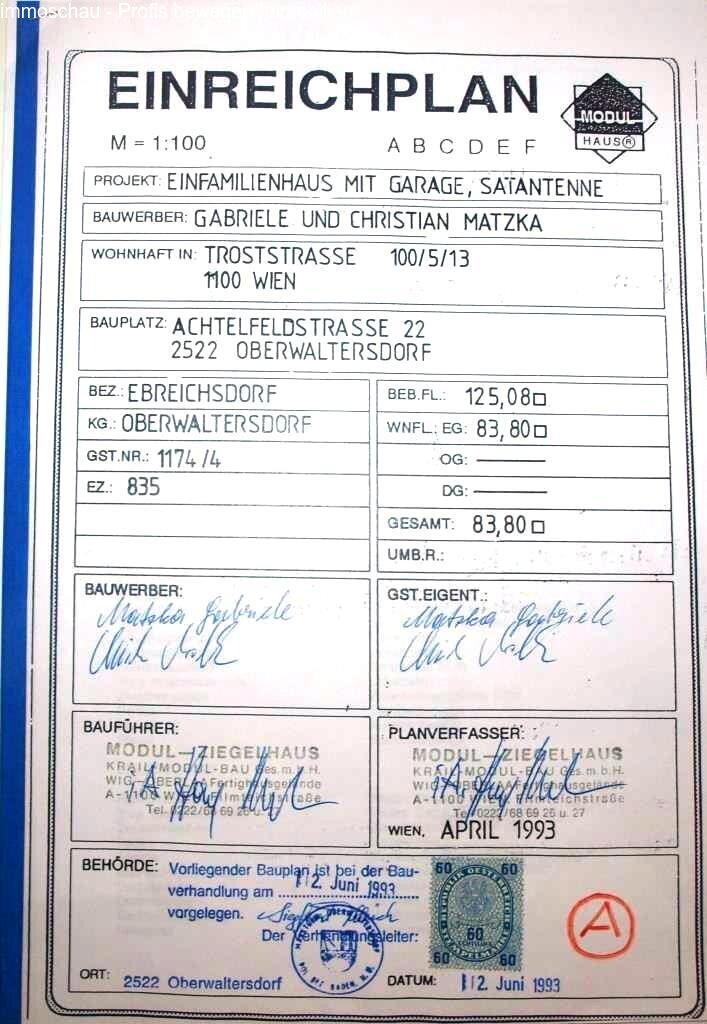 immoschau - Profis bewerten Immobilien
EINREICHPLAN
M = 1:100
A B C D E F
MODUL
HAUS®
PROJEKT: EINFAMILIENHAUS MIT GARAGE, SATANTENNE
BAUWERBER: GABRIELE UND CHRISTIAN MATZKA
WOHNHAFT IN: TROSTSTRASSE 100/5/13
1100 WIEN
BAUPLATZ: ACHTELFELDSTRASSE 22
2522 OBERWALTERSDORF
BEZ.: EBREICHSDORF
KG.: OBERWALTERSDORF
GST.NR.: 1174/4
EZ.: 835
BEB.FL.: 125,08□
WNFL.: EG: 83,80□
OG: ———
DG: ———
GESAMT: 83,80□
UMB.R.:
BAUWERBER:
Matzka Gabriele
GST.EIGENT.:
Matzka Gabriele
BAUFÜHRER:
MODUL-ZIEGELHAUS
KRAIL-MODUL-BAU Ges.m.b.H.
Fertighausgelände
A-1100
Tel. 0222/68 69 26
PLANVERFASSER:
MODUL-ZIEGELHAUS
KRAIL-MODUL-BAU Ges.m.b.H.
Fertighausgelände
A-1100
Tel. 0222/68 69 26 u. 27
WIEN, APRIL 1993
BEHÖRDE: Vorliegender Bauplan ist bei der Bau-
verhandlung am 12. Juni 1993
vorgelegen.
Der Verhandlungsleiter:
60 60
REPUBLIK OESTERREICH
60
60 60
A
ORT: 2522 Oberwaltersdorf
DATUM: 12. Juni 1993